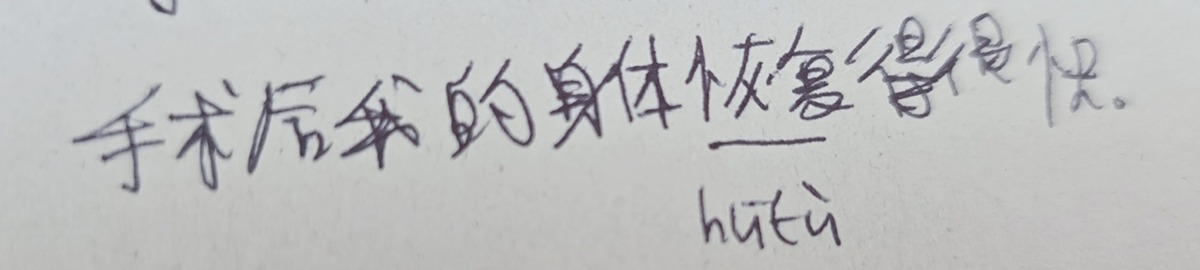 手术后我的身体恢复得很快。
hūtù